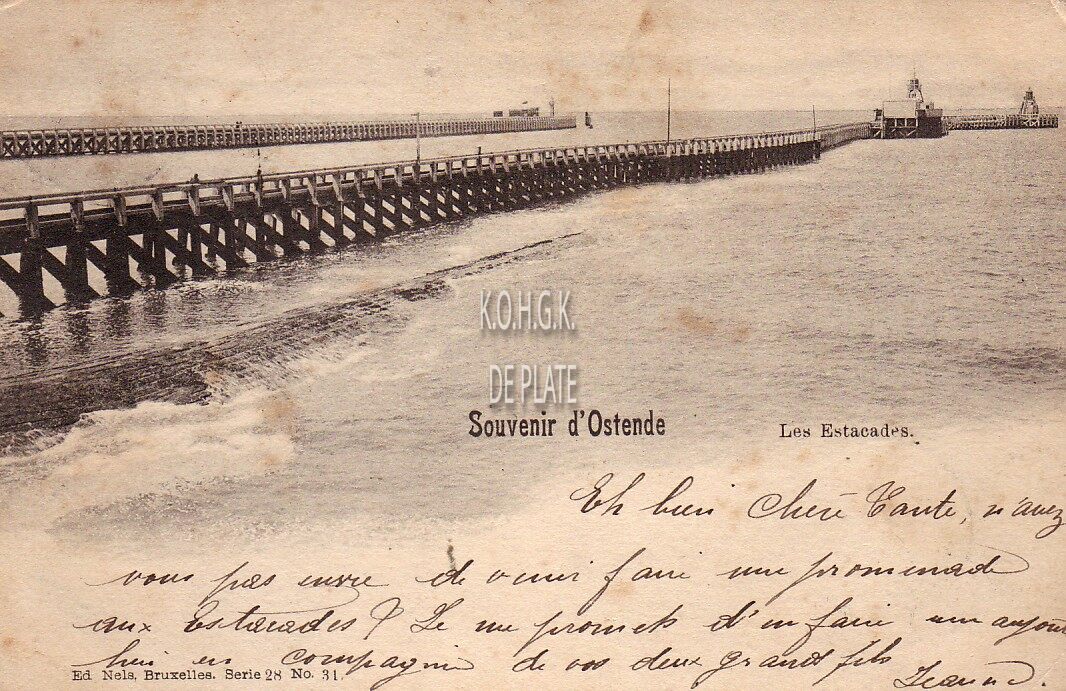 K.O.H.G.K.
DE PLATE
Souvenir d'Ostende
Les Estacades.
Eh bien Chère Tante, n'avez
vous pas envie de venir faire une promenade
aux Estacades? Je me promets d'en faire une aujour
hui en compagnie de vos deux grands fils
Jeanne.
Ed Nels, Bruxelles. Serie 28 No. 31.